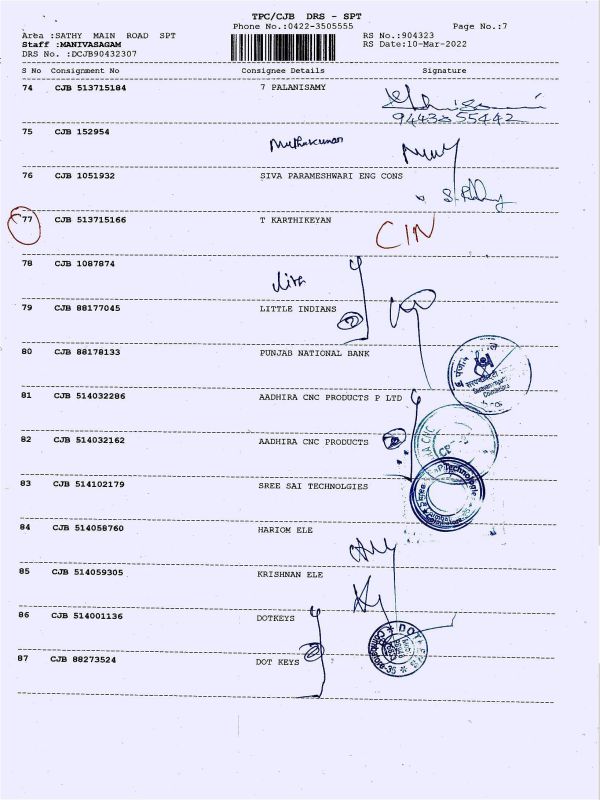 TPC/CJB DRS - SPT
Phone No.:0422-3505555 Page No.:7
Area :SATHY MAIN ROAD SPT RS No.:904323
Staff :MANIVASAGAM RS Date:10-Mar-2022
DRS No. :DCJB90432307
S No Consignment No Consignee Details Signature
74 CJB 513715184 7 PALANISAMY
9443855442
75 CJB 152954 Muthukumar
76 CJB 1051932 SIVA PARAMESHWARI ENG CONS
77 CJB 513715166 T KARTHIKEYAN CIN
78 CJB 1087874
79 CJB 88177045 LITTLE INDIANS 2
80 CJB 88178133 PUNJAB NATIONAL BANK
81 CJB 514032286 AADHIRA CNC PRODUCTS P LTD
82 CJB 514032162 AADHIRA CNC PRODUCTS 2
83 CJB 514102179 SREE SAI TECHNOLGIES
84 CJB 514058760 HARIOM ELE
85 CJB 514059305 KRISHNAN ELE
86 CJB 514001136 DOTKEYS
87 CJB 88273524 DOT KEYS 2